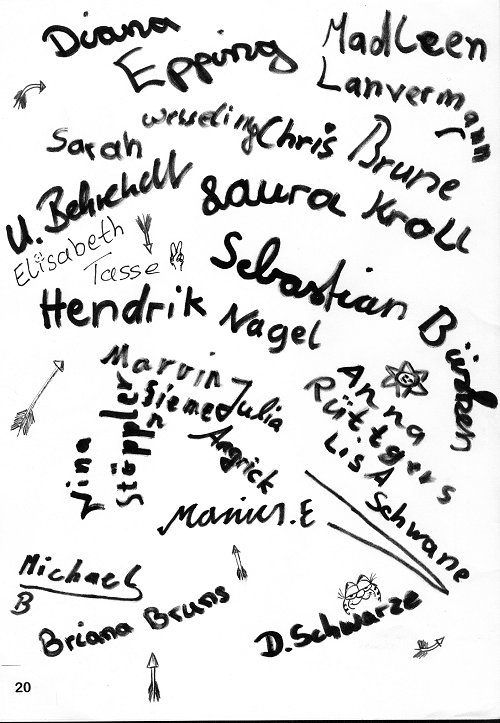 Diana
Epping
Madleen
Lanvermann
Sarah
Wesseling
Chris Brune
U. Behrendt
Laura Kroll
Elisabeth
Tasse
Sebastian
Hendrik Nagel
Marvin
Siemen
Julia
Angrick
Nina
Anna
Rüttgers
Lisa
Schwane
Marius.E
Michael
B
Briana Bruns
D. Schwarze
20